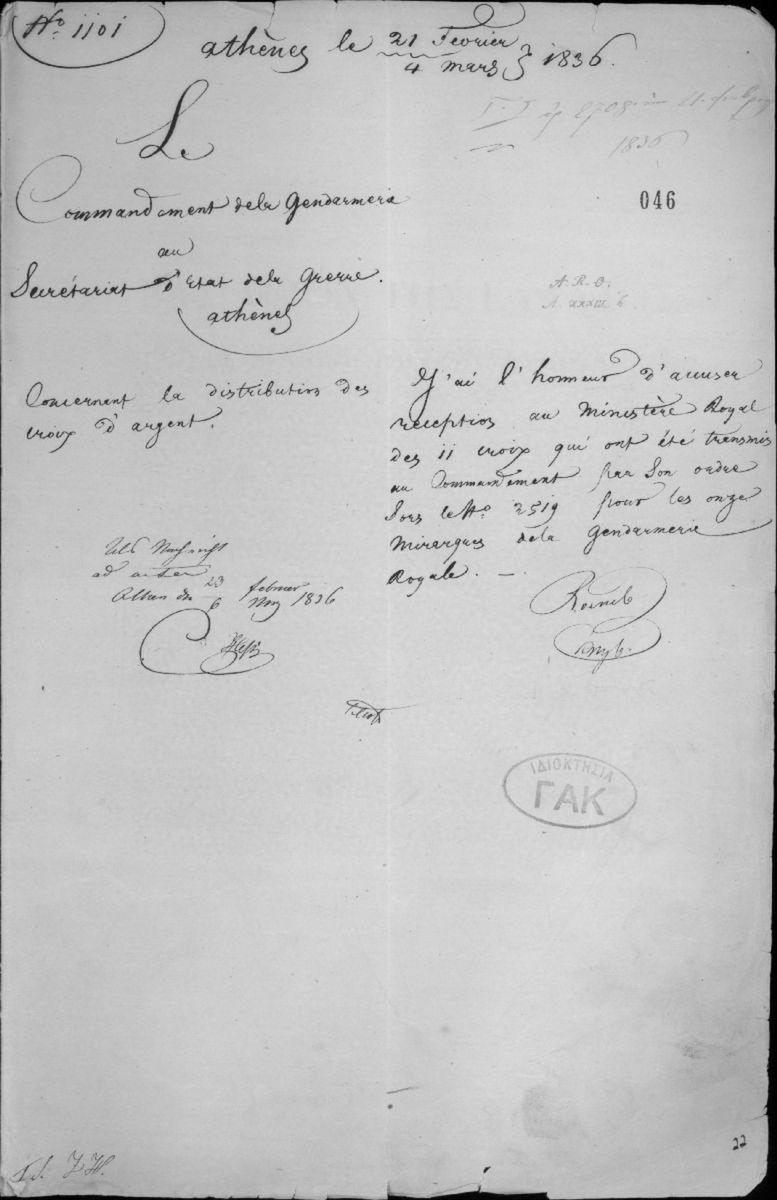 No. 1101
athènes le 21 Fevrier / 4 mars } 1836.
1836
Le
Commandement dela Gendarmerie
046
au
Secrétariat d'Etat dela Grerie.
athènes
A. R. O.
A. XXXIII 6
Concernent la distribution des
croix d'argent.
J'ai l'honneur d'accuser
reception au Ministère Royal
des 11 croix qui ont été transmis
au Commandement par Son ordre
Sors le No. 2519 pour les onze
Mirarques dela Gendarmerie
Royale. —
ad acta
23 / 6 februar 1836
ΙΔΙΟΚΤΗΣΙΑ
ΓΑΚ
22